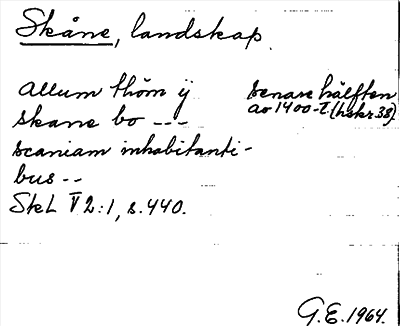 Skåne, landskap.
allum thöm ÿ
skane bo ---
scaniam inhabitanti-
bus --
SkL V 2:1, s. 440.
senare hälften
av 1400-t. (hskr 38)
G.E. 1964.